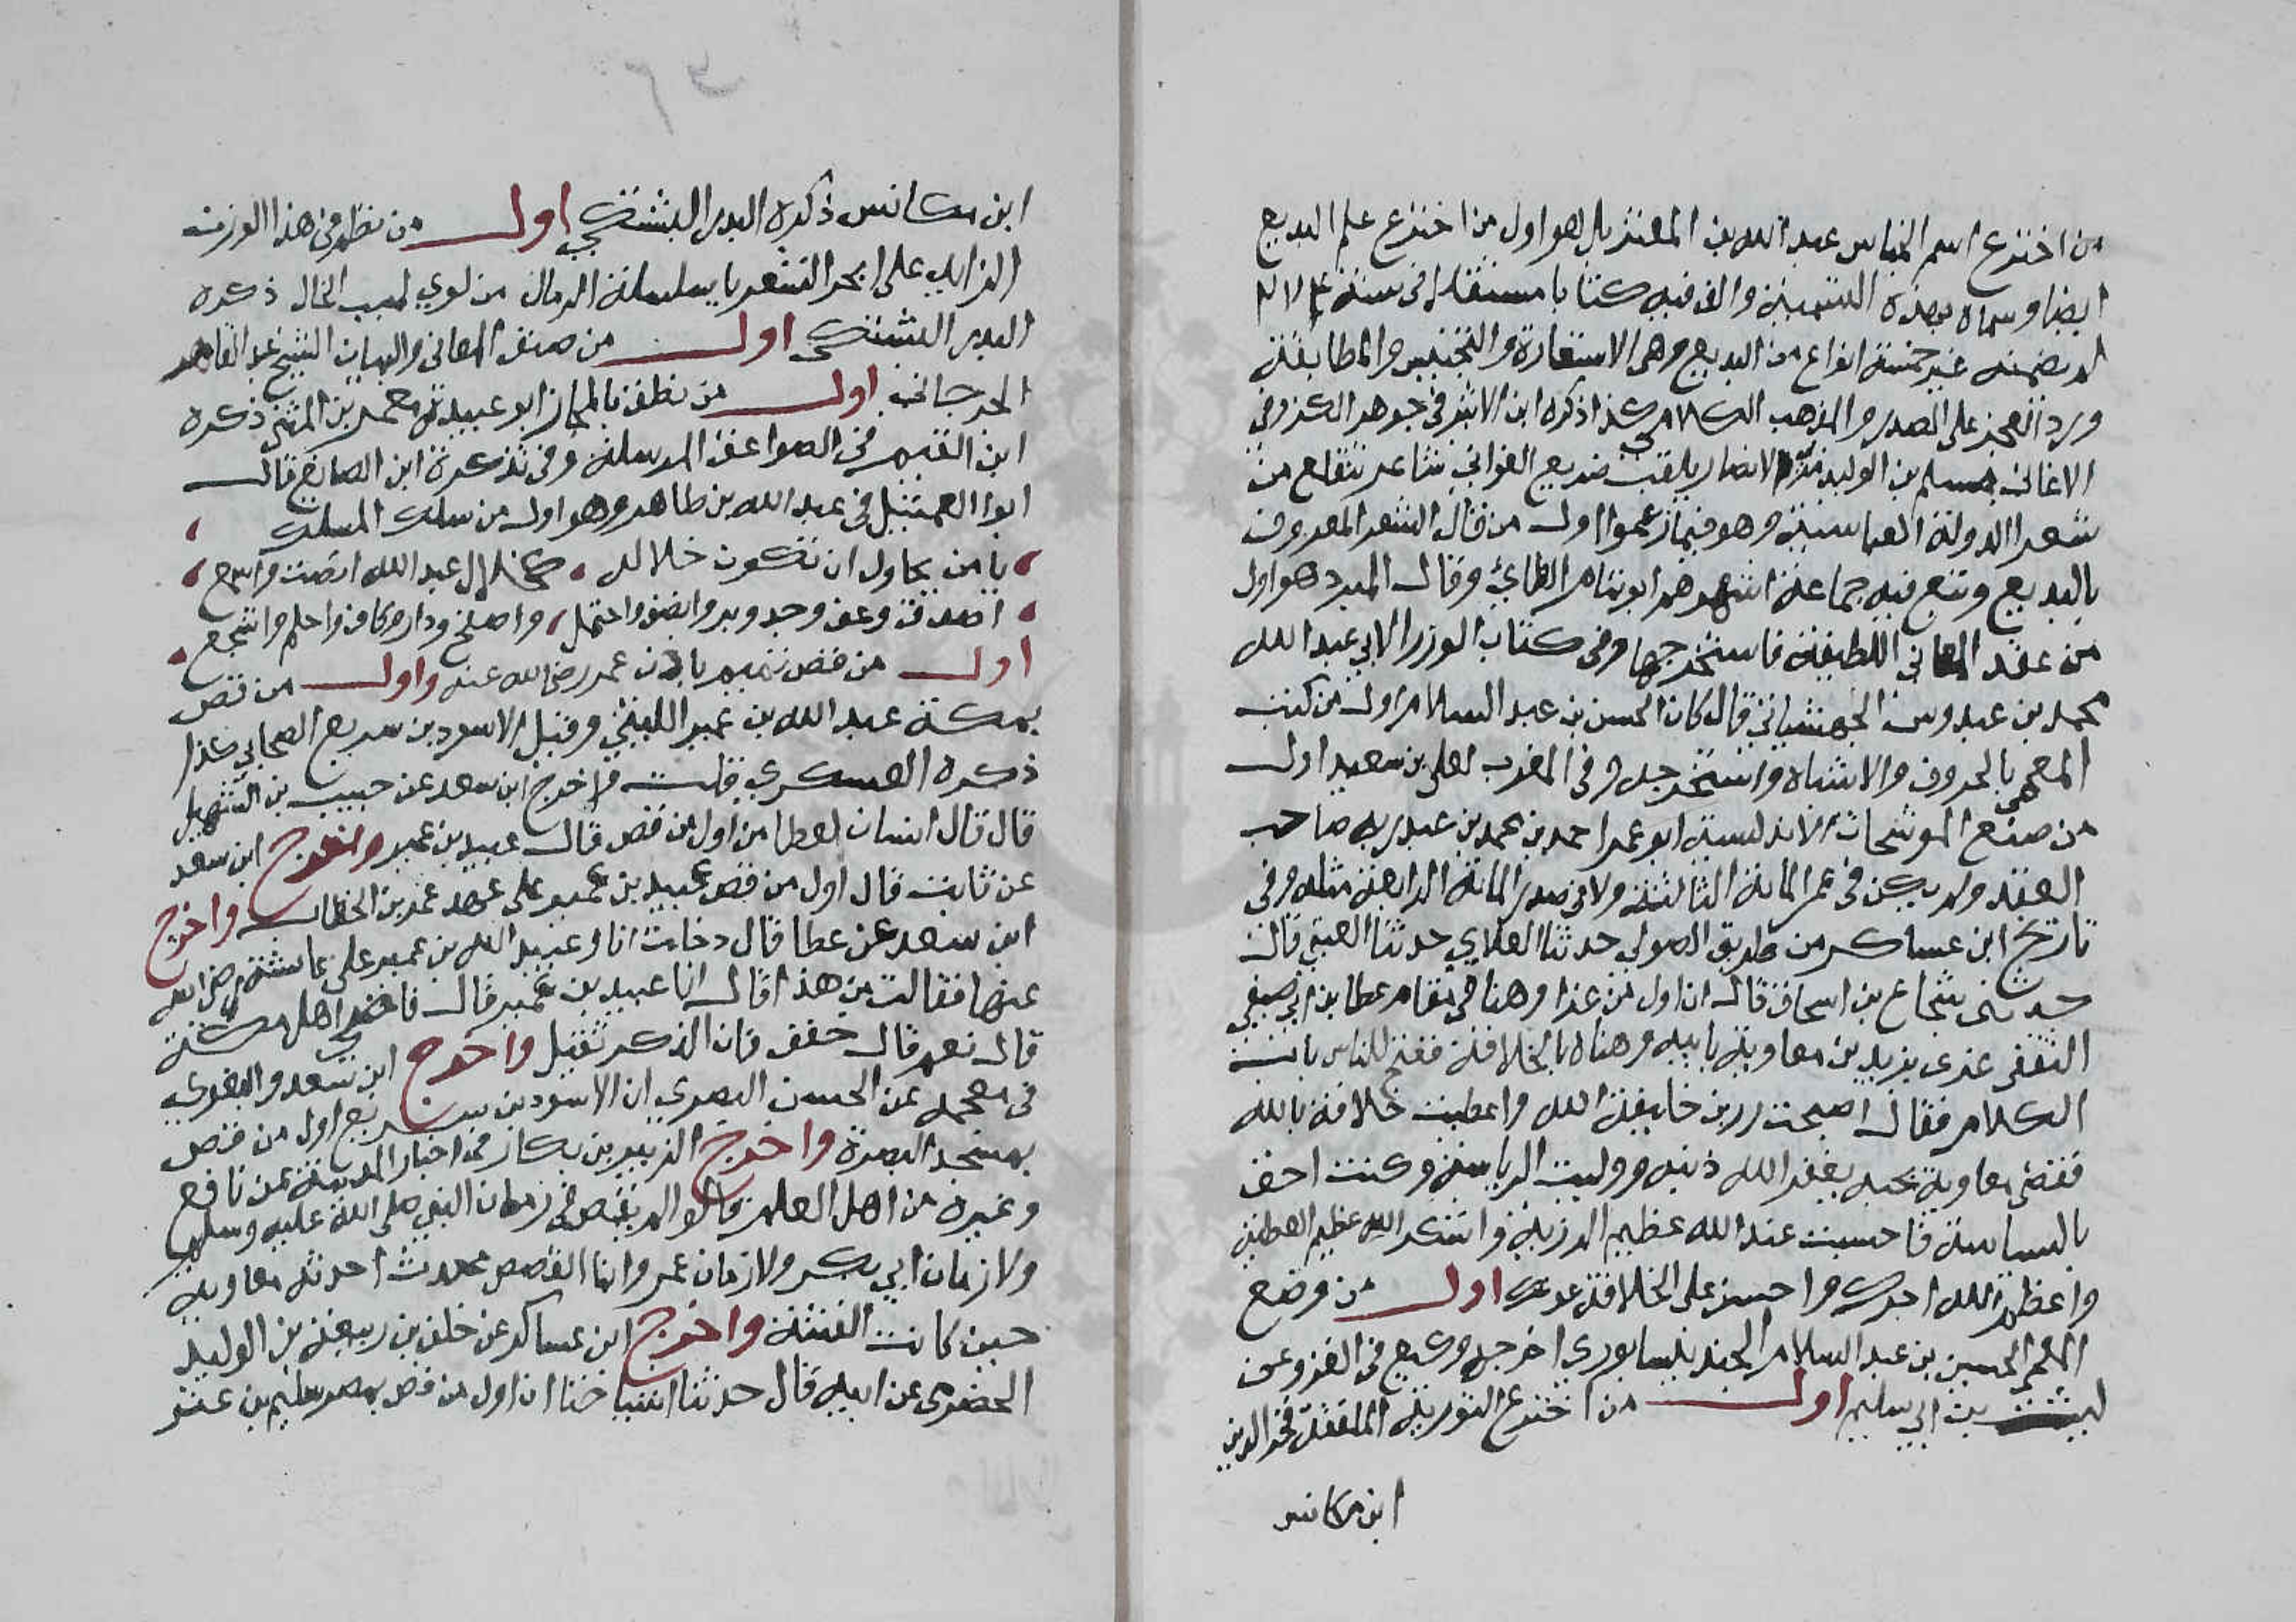 من اخترع اسم الجناس عبد الله بن المعتز بل هو اول من اخترع علم البديع
ايضا وسماه بهذه التسمية والف فيه كتابا مستقلا في سنة
لم يضمنه غير خمسة انواع من البديع وهي الاستعارة والتجنيس والمطابقة
ورد العجز على الصدر والمذهب الكلامي كذا ذكره ابن الاثير في جوهر الكنز وفي
الاغاني مسلم بن الوليد الانصار يلقب صريع الغواني شاعر من
شعرا الدولة العباسية وهو فيما زعموا اول من قال الشعر المعروف
بالبديع وتبع فيه جماعة اشهرهم ابو تمام الطايي وقال المبرد هو اول
من عقد المعاني اللطيفة فاستخرجها وفي كتاب الوزرا لابي عبد الله
محمد بن عبدوس الجهشياني قال كان الحسن بن عبد السلام اول من كتب
المعمى بالحروف والاشباه واستخرجه وفي المغرب لعلي بن سعيد اول
من صنع الموشحات الاندلسية ابو عمر احمد بن محمد بن عبد ربه صاحب
العقد ولم يكن في عمر المائة الثالثة ولا في صدر المائة الرابعة مثله وفي
تاريخ ابن عساكر من طريق الصولي حدثنا العلاي حدثنا العتبي قال
حدثني شجاع بن اسحاق قال ان اول من عزا وهنا في مقام عطا بن ابي صيفي
الثقفي عزى يزيد بن معاوية بابيه وهناه بالخلافة ففتح للناس باب
الكلام فقال اصبحت رزيت خليفة الله واعطيت خلافة بالله
فقضى معاوية نحبه يغفر الله ذنبه ووليت الرياسة وكنت احق
بالسياسة فاحتسبت عند الله عظيم الرزية واشكر الله عظيم العطية
واعظم الله اجرك واحسن على الخلافة عونك اول من وضع
المعمى الحسين بن عبد السلام الجند يليسابوري اخرجه وكيع في الغرر عن
ليث بن ابي سليم اول من اخترع التورية الملفقة فخر الدين
ابن مكانس
ابن مكانس ذكره البدر البشتكي اول من نظم في هذا الوزن
الزايد على ابحر الشعر يا سلسلة الرمال من لوي لهيب الخال ذكره
البدر البشتكي اول من صنف المعاني والبيان الشيخ عبد القاهر
الجرجاني اول من نطق بالمجاز ابو عبيدة معمر بن المثنى ذكره
ابن القيم في الصواعق المرسلة وفي تذكرة ابن الصايغ قال
ابوا العميثل في عبد الله بن طاهر وهو اول من سلك المسلك
يا من يحاول ان تكون خلاله كخلال عبد الله انصت واسمع
اصدق وعف وجد وبر وانصف واحتمل واصفح ودار وكاف واحلم واشجع
اول من قص تميم باذن عمر رضي الله عنه واول من قص
بمكة عبد الله بن عمير الليثي وقيل الاسود بن سريع الصحابي كذا
ذكره العسكري قلت واخرج ابن سعد عن حبيب بن الشهيل
قال قال انسان لعطا من اول من قص قال عبيد بن عمير واخرج ابن سعد
عن ثابت قال اول من قص عبيد بن عمير على عهد عمر بن الخطاب واخرج
ابن سعد عن عطا قال دخلت انا وعبيد الله بن عمير على عايشة رضي الله
عنها فقالت من هذا قال انا عبيد بن عمير قال قاضي اهل مكة
قال نعم قال خفف فان الذكر ثقيل واخرج ابن سعد والبغوي
في معجمه عن الحسن البصري ان الاسود بن سريع اول من قص
بمسجد البصرة واخرج الزبير بن بكار في اخبار المدينة عن نافع
وغيره من اهل العلم قالوا لم يقص في زمان النبي صلى الله عليه وسلم
ولا زمان ابي بكر ولا زمان عمر وانما القصص محدث احدثه معاوية
حين كانت الفتنة واخرج ابن عساكر عن خلف بن ربيعة بن الوليد
الحضرمي عن ابيه قال حدثنا اشياخنا ان اول من قص بمصر سليم بن عتر